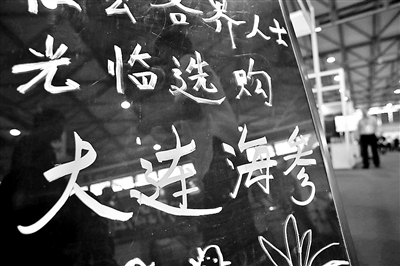 各界人士
光临选购
大连海参